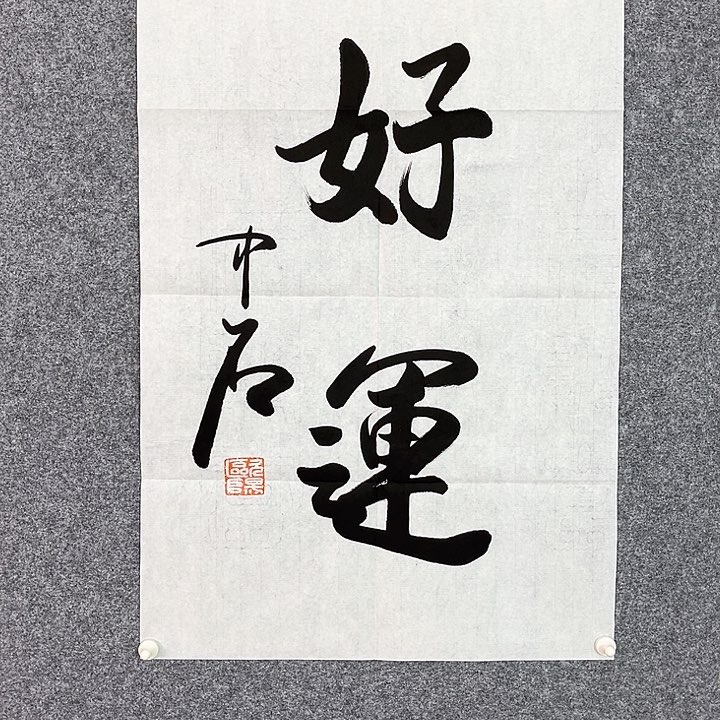 好運
中石